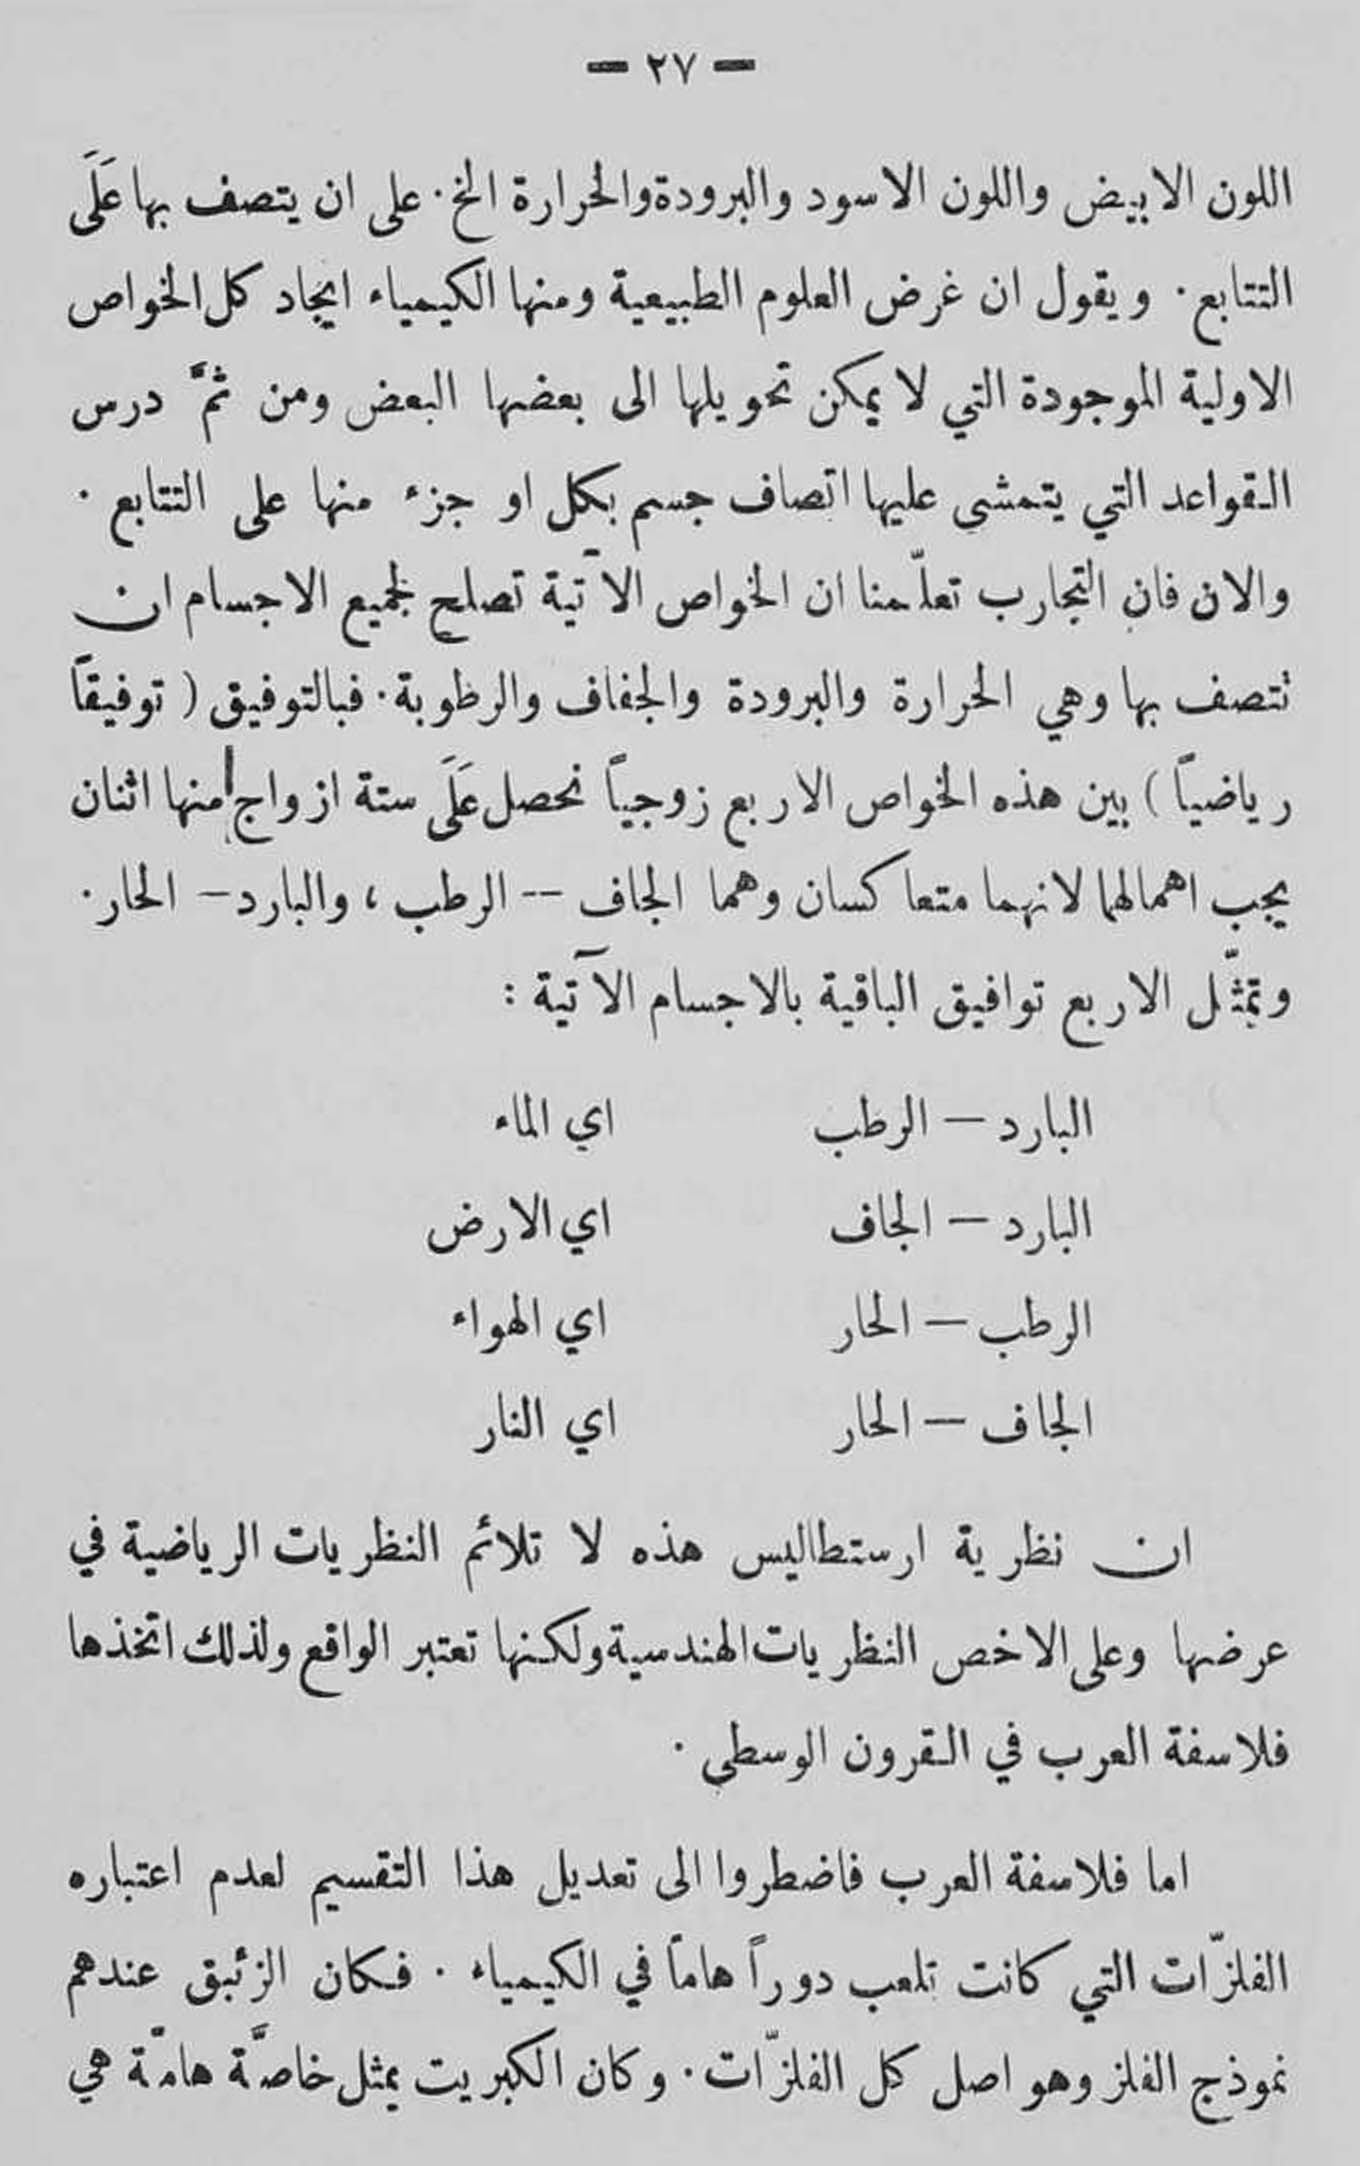 — ٢٧ —
اللون الابيض واللون الاسود والبرودة والحرارة الخ. على ان يتصف بها عَلَى
التتابع. ويقول ان غرض العلوم الطبيعية ومنها الكيمياء ايجاد كل الخواص
الاولية الموجودة التي لا يمكن تحويلها الى بعضها البعض ومن ثمَّ درس
القواعد التي يتمشى عليها اتصاف جسم بكل او جزء منها على التتابع.
والان فان التجارب تعلّمنا ان الخواص الآتية تصلح لجميع الاجسام ان
تتصف بها وهي الحرارة والبرودة والجفاف والرطوبة. فبالتوفيق ( توفيقاً
رياضياً ) بين هذه الخواص الاربع زوجياً نحصل عَلَى ستة ازواج منها اثنان
يجب اهمالهما لانهما متعاكسان وهما الجاف -- الرطب ، والبارد — الحار.
وتمثّل الاربع توافيق الباقية بالاجسام الآتية :
البارد — الرطب اي الماء
البارد — الجاف اي الارض
الرطب — الحار اي الهواء
الجاف — الحار اي النار
ان نظرية ارستطاليس هذه لا تلائم النظريات الرياضية في
عرضها وعلى الاخص النظريات الهندسية ولكنها تعتبر الواقع ولذلك اتخذها
فلاسفة العرب في القرون الوسطى.
اما فلاسفة العرب فاضطروا الى تعديل هذا التقسيم لعدم اعتباره
الفلزّات التي كانت تلعب دوراً هاماً في الكيمياء. فكان الزئبق عندهم
نموذج الفلز وهو اصل كل الفلزّات. وكان الكبريت يمثل خاصَّة هامّة هي